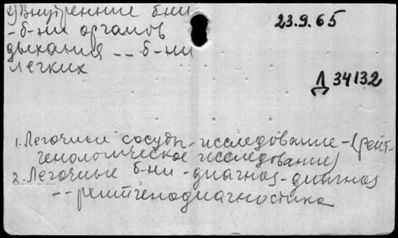 а) Внутренние б-ни
23.9.65
- б-ни органов
дыхания -- б-ни
легких
Д 34132
1. Легочные сосуды - исследование - (рент-
генологическое исследование)
2. Легочные б-ни - диагноз - диагноз
-- рентгенодиагностика